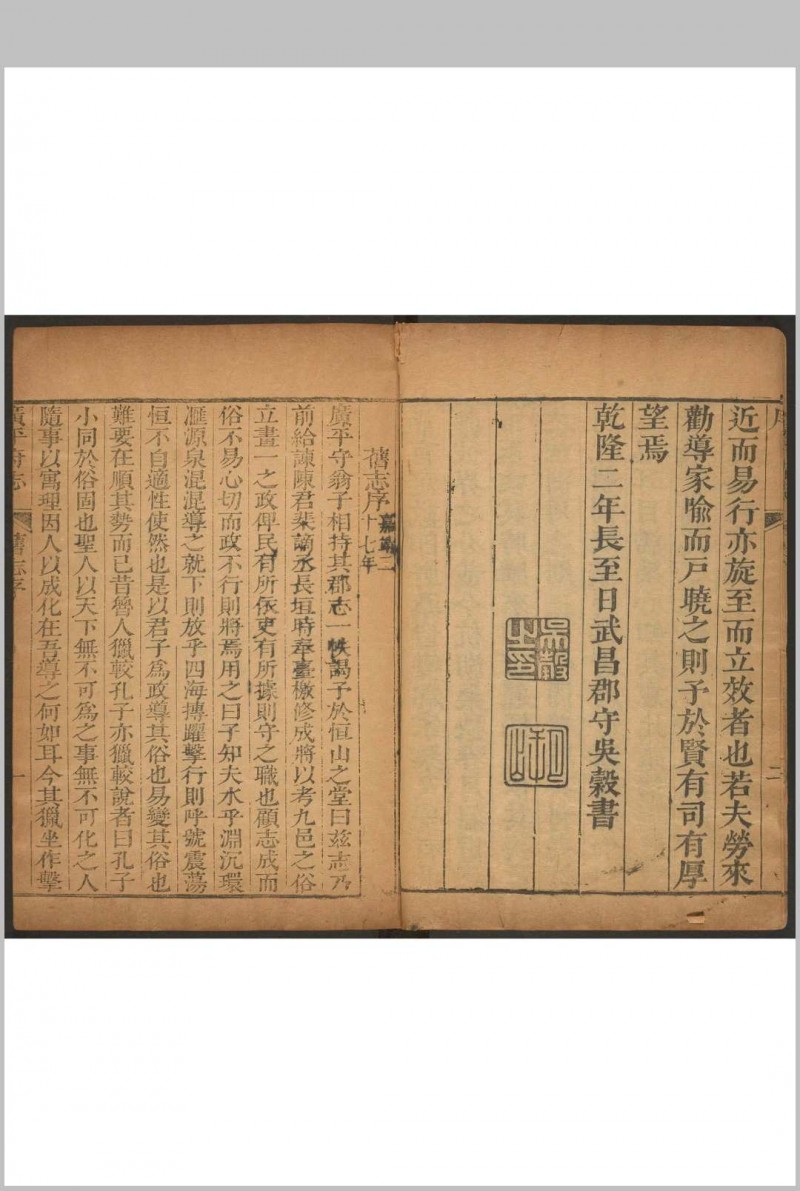 序
二
近而易行亦旋至而立效者也若夫勞來
勸導家喻而戸曉之則予於賢有司有厚
望焉
乾隆二年長至日武昌郡守吳穀書
吳穀之印
舊志序 嘉靖二十七年
廣平守翁子相持其郡志一帙謁予於恒山之堂曰茲志乃
前給諫陳君棐謫丞長垣時奉臺檄修成將以考九邑之俗
立畫一之政俾民有所依吏有所據則守之職也顧志成而
俗不易心切而政不行則將焉用之曰子知夫水乎淵沉環
滙源泉混混導之就下則放乎四海摶躍擊行則呼號震蕩
恒不自適性使然也是以君子為政導其俗也易變其俗也
難要在順其勢而已昔魯人獵較孔子亦獵較說者曰孔子
小同於俗固也聖人以天下無不可為之事無不可化之人
隨事以寓理因人以成化在吾導之何如耳今其獵坐作擊
廣平府志 舊志序 一